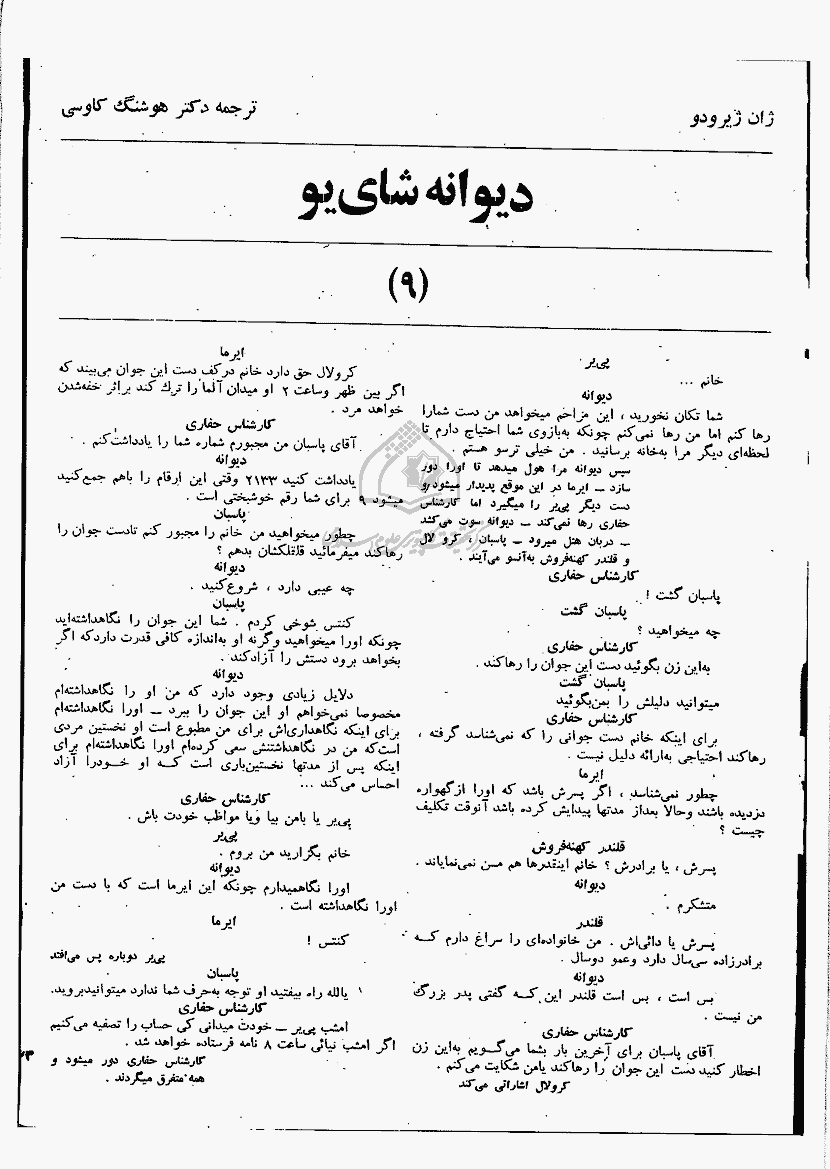 ژان ژیرودو
ترجمه دکتر هوشنگ کاوسی
دیوانه شای‌یو
(۹)
پی‌یر
خانم ...
دیوانه
شما تکان نخورید ، این مزاحم میخواهد من دست شمارا
رها کنم اما من رها نمی‌کنم چونکه به‌بازوی شما احتیاج دارم تا
لحظه‌ای دیگر مرا به‌خانه برسانید . من خیلی ترسو هستم .
سپس دیوانه مرا هول میدهد تا اورا دور
سازد ــ ایرما در این موقع پدیدار میشود و
دست دیگر پی‌یر را میگیرد اما کارشناس
حفاری رها نمی‌کند ــ دیوانه سوت می‌کشد
ــ دربان هتل میرود ــ پاسبان ، کرو لال
و قلندر کهنه‌فروش به‌آنسو می‌آیند .
کارشناس حفاری
پاسبان گشت !
پاسبان گشت
چه میخواهید ؟
کارشناس حفاری
به‌این زن بگوئید دست این جوان را رهاکند .
پاسبان گشت
میتوانید دلیلش را بمن‌بگوئید
کارشناس حفاری
برای اینکه خانم دست جوانی را که نمی‌شناسد گرفته ،
رهاکند احتیاجی به‌ارائه دلیل نیست .
ایرما
چطور نمی‌شناسد ، اگر پسرش باشد که اورا ازگهواره
دزدیده باشند وحالا بعداز مدتها پیدایش کرده باشد آنوقت تکلیف
چیست ؟
قلندر کهنه‌فروش
پسرش ، یا برادرش ؟ خانم اینقدرها هم مسن نمی‌نمایاند .
دیوانه
متشکرم .
قلندر
پسرش یا دائی‌اش . من خانواده‌ای را سراغ دارم کـه
برادرزاده سی‌سال دارد وعمو دوسال .
دیوانه
بس است ، بس است قلندر این کـه گفتی پدر بزرگ
من نیست .
کارشناس حفاری
آقای پاسبان برای آخرین بار بشما می‌گـویم به‌این زن
اخطار کنید دست این جوان را رهاکند یامن شکایت می‌کنم .
کرولال اشاراتی می‌کند
ایرما
کرولال حق دارد خانم درکف دست این جوان می‌بیند که
اگر بین ظهر وساعت ۲ او میدان آلما را ترك کند براثر خفه‌شدن
خواهد مرد .
کارشناس حفاری
آقای پاسبان من مجبورم شماره شما را یادداشت‌کنم .
دیوانه
یادداشت کنید ۲۱۳۳ وقتی این ارقام را باهم جمع‌کنید
میشود ۹ برای شما رقم خوشبختی است .
پاسبان
چطور میخواهید من خانم را مجبور کنم تادست جوان را
رهاکند میفرمائید قلقلکشان بدهم ؟
دیوانه
چه عیبی دارد ، شروع‌کنید .
پاسبان
کنتس شوخی کردم . شما این جوان را نگاهداشته‌اید
چونکه اورا میخواهید وگرنه او به‌اندازه کافی قدرت داردکه اگر
بخواهد برود دستش را آزادکند .
دیوانه
دلایل زیادی وجود دارد که من او را نگاهداشته‌ام
مخصوصا نمی‌خواهم او این جوان را ببرد ــ اورا نگاهداشته‌ام
برای اینکه نگاهداری‌اش برای من مطبوع است او نخستین مردی
است‌که من در نگاهداشتنش سعی کرده‌ام اورا نگاهداشته‌ام برای
اینکه پس از مدتها نخستین‌باری است کـه او خـودرا آزاد
احساس می‌کند ...
کارشناس حفاری
پی‌یر یا بامن بیا ویا مواظب خودت باش .
پی‌یر
خانم بگذارید من بروم .
دیوانه
اورا نگاهمیدارم چونکه این ایرما است که با دست من
اورا نگاهداشته است .
ایرما
کنتس !
پی‌یر دوباره پس می‌افتد
پاسبان
یالله راه بیفتید او توجه به‌حرف شما ندارد میتوانیدبروید.
کارشناس حفاری
امشب پی‌یر ــ خودت میدانی کی حساب را تصفیه می‌کنیم
اگر امشب نیائی ساعت ۸ نامه فرستاده خواهد شد .
کارشناس حفاری دور میشود و
همه متفرق میگردند .